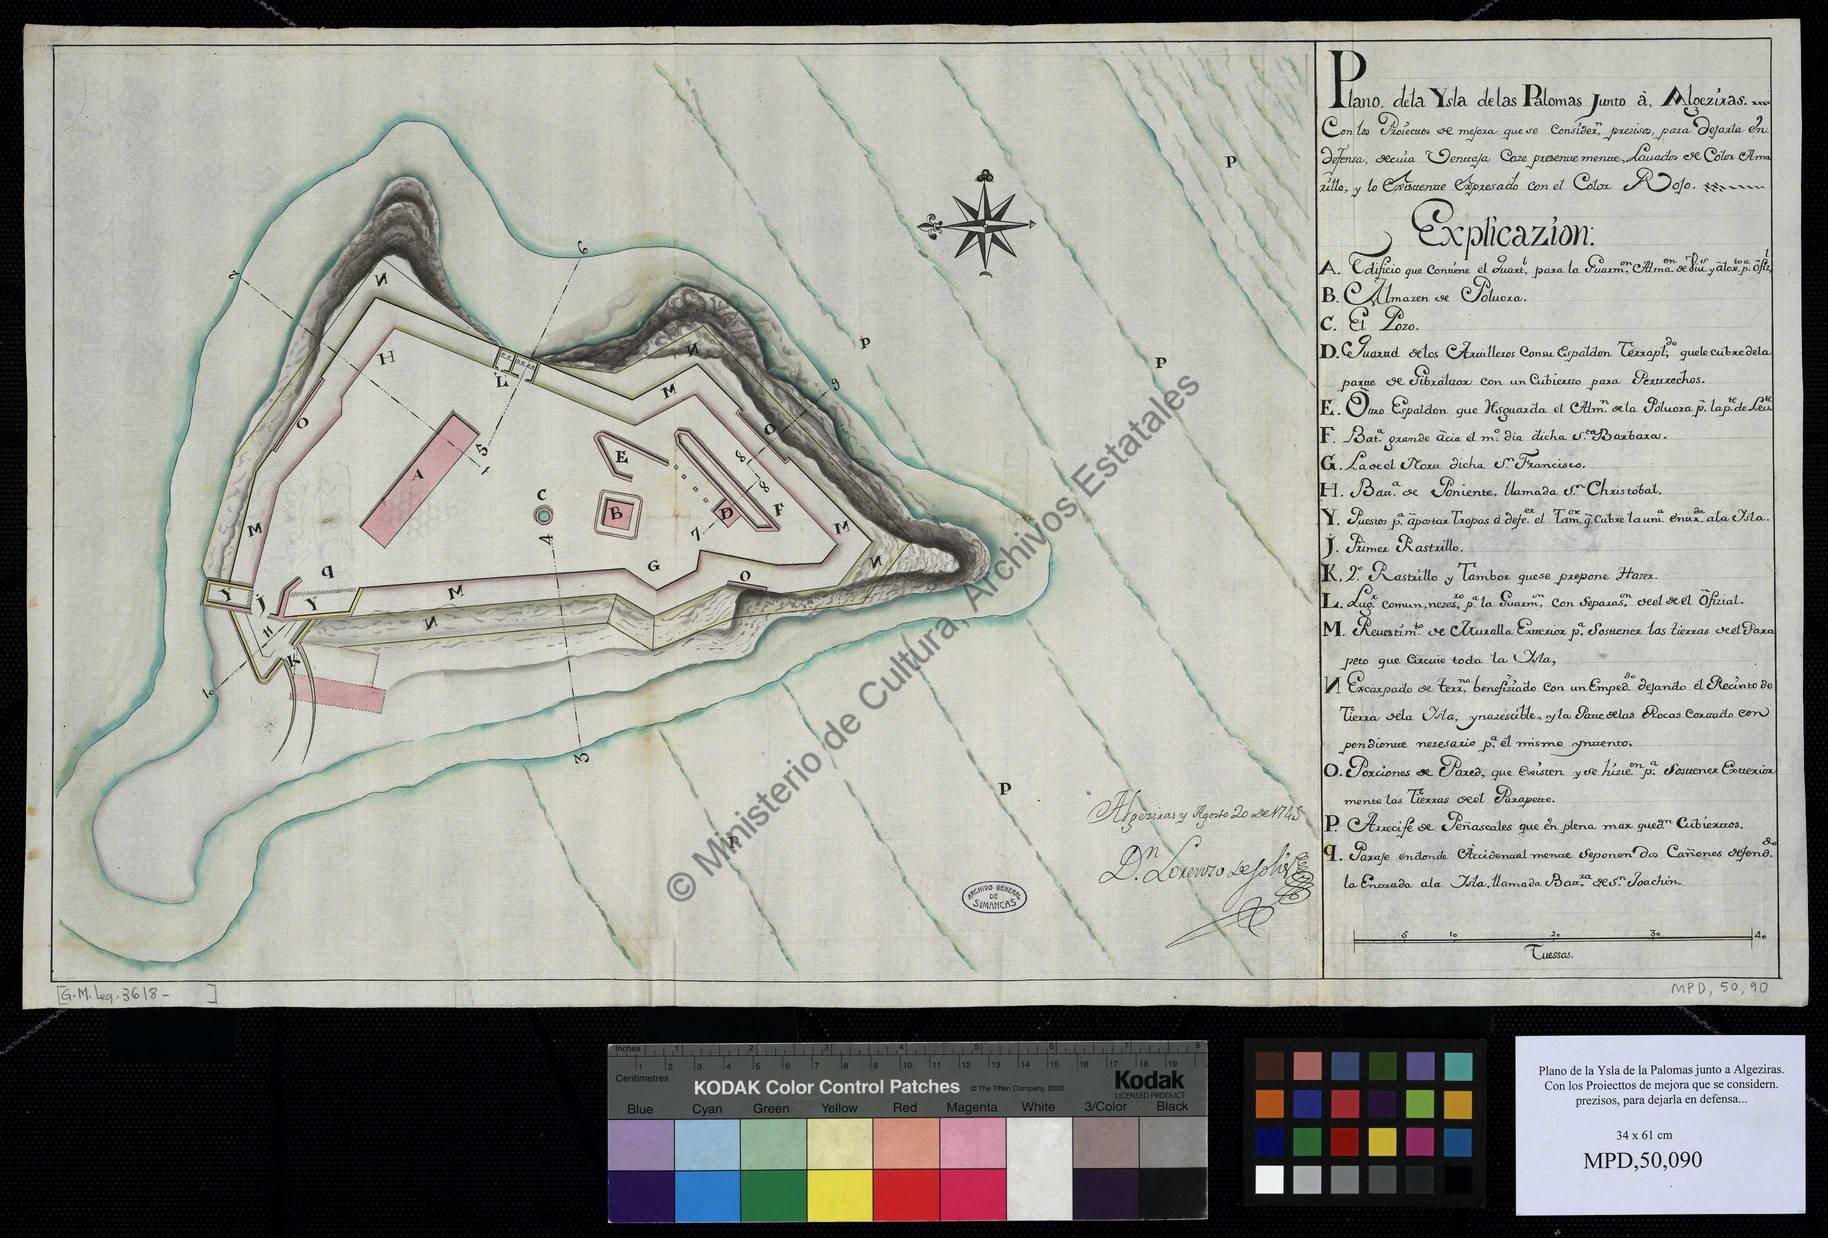 Plano. de la Ysla de las Palomas Junto à, Algeziras.
Con los Proiectos de mejora que se Considern, prezisos, para Dejarla ên
defensa, de cuia Ventaja Caze presente mente, Lauados de Color Ama
rillo, y lo Existente Expresado con el Color Rojo.
Explicazion:
A. Edificio que Contiene el Quartl, para la Guarnon, Alma.
B. Almazen de Poluora.
C. El Pozo.
D. Quartel de los Artilleros Con su Espaldon Terrapldo, que le cubre de la
parte de Gibraltar con un Cubierto para Pertrechos.
E. Otro Espaldon que Resguarda el Almn. de la Poluora pr. la pte. de Leute
F. Bata. grande àcia el mo. dia dicha Sta. Barbara.
G. La de el Norte dicha Sn. Francisco.
H. Bata. de Poniente, llamada Sn. Christobal.
Y. Puestos pa. apostar Tropas à defer. el Tamor. q. Cubre la uni.a entrda. a la Ysla.
J. Primer Rastrillo.
K. 2o. Rastrillo y Tambor que se propone Hazer.
L. Lugr. comun, nezesro. pa. la Guarnon, con Separason, de el de él Ofizial.
M. Reuestimto. de Muralla Exterior pa. Sostener las tierras de el Para
peto que Circuie toda la Ysla,
N Escarpado de terrno. benefiziado con un Emped.do dejando el Recinto de
Tierra de la Ysla, ynaxescible, y la Parte de las Rocas Cortado con
pendiente nezesario pa. él mismo yntento.
O. Porciones de Pared, que Existen y se hizieron pa. Sostener Exterior
mente las Tierras de el Parapetto.
P. Arrecife de Peñascales que ên plena mar quedn Cubiertos.
q. Paraje en donde Accidental mente se ponen dos Cañones defend.do
la Entrada a la Ysla, llamada Batra. de Sn. Joachin.
5 10 20 30 40
Tuessas.
P
P
P
P
P
2
6
9
N
N
H
L
M
O
O
5
1
A
E
8
8
C
B
D
F
7
M
M
N
4
G
O
q
Y
J
Y
M
N
H
K
10
3
Algeziras y Agosto 20 de 1745
Dn. Lorenzo de Solis
ARCHIVO GENERAL
DE
SIMANCAS
© Ministerio de Cultura, Archivos Estatales
[G.M. Leg. 3618- ]
MPD, 50, 90
Inches 1 2 3 4 5 6 7 8
Centimetres 1 2 3 4 5 6 7 8 9 10 11 12 13 14 15 16 17 18 19
KODAK Color Control Patches © The Tiffen Company, 2000 Kodak
LICENSED PRODUCT
Blue Cyan Green Yellow Red Magenta White 3/Color Black
Plano de la Ysla de la Palomas junto a Algeziras.
Con los Proiecttos de mejora que se considern.
prezisos, para dejarla en defensa...
34 x 61 cm
MPD,50,090